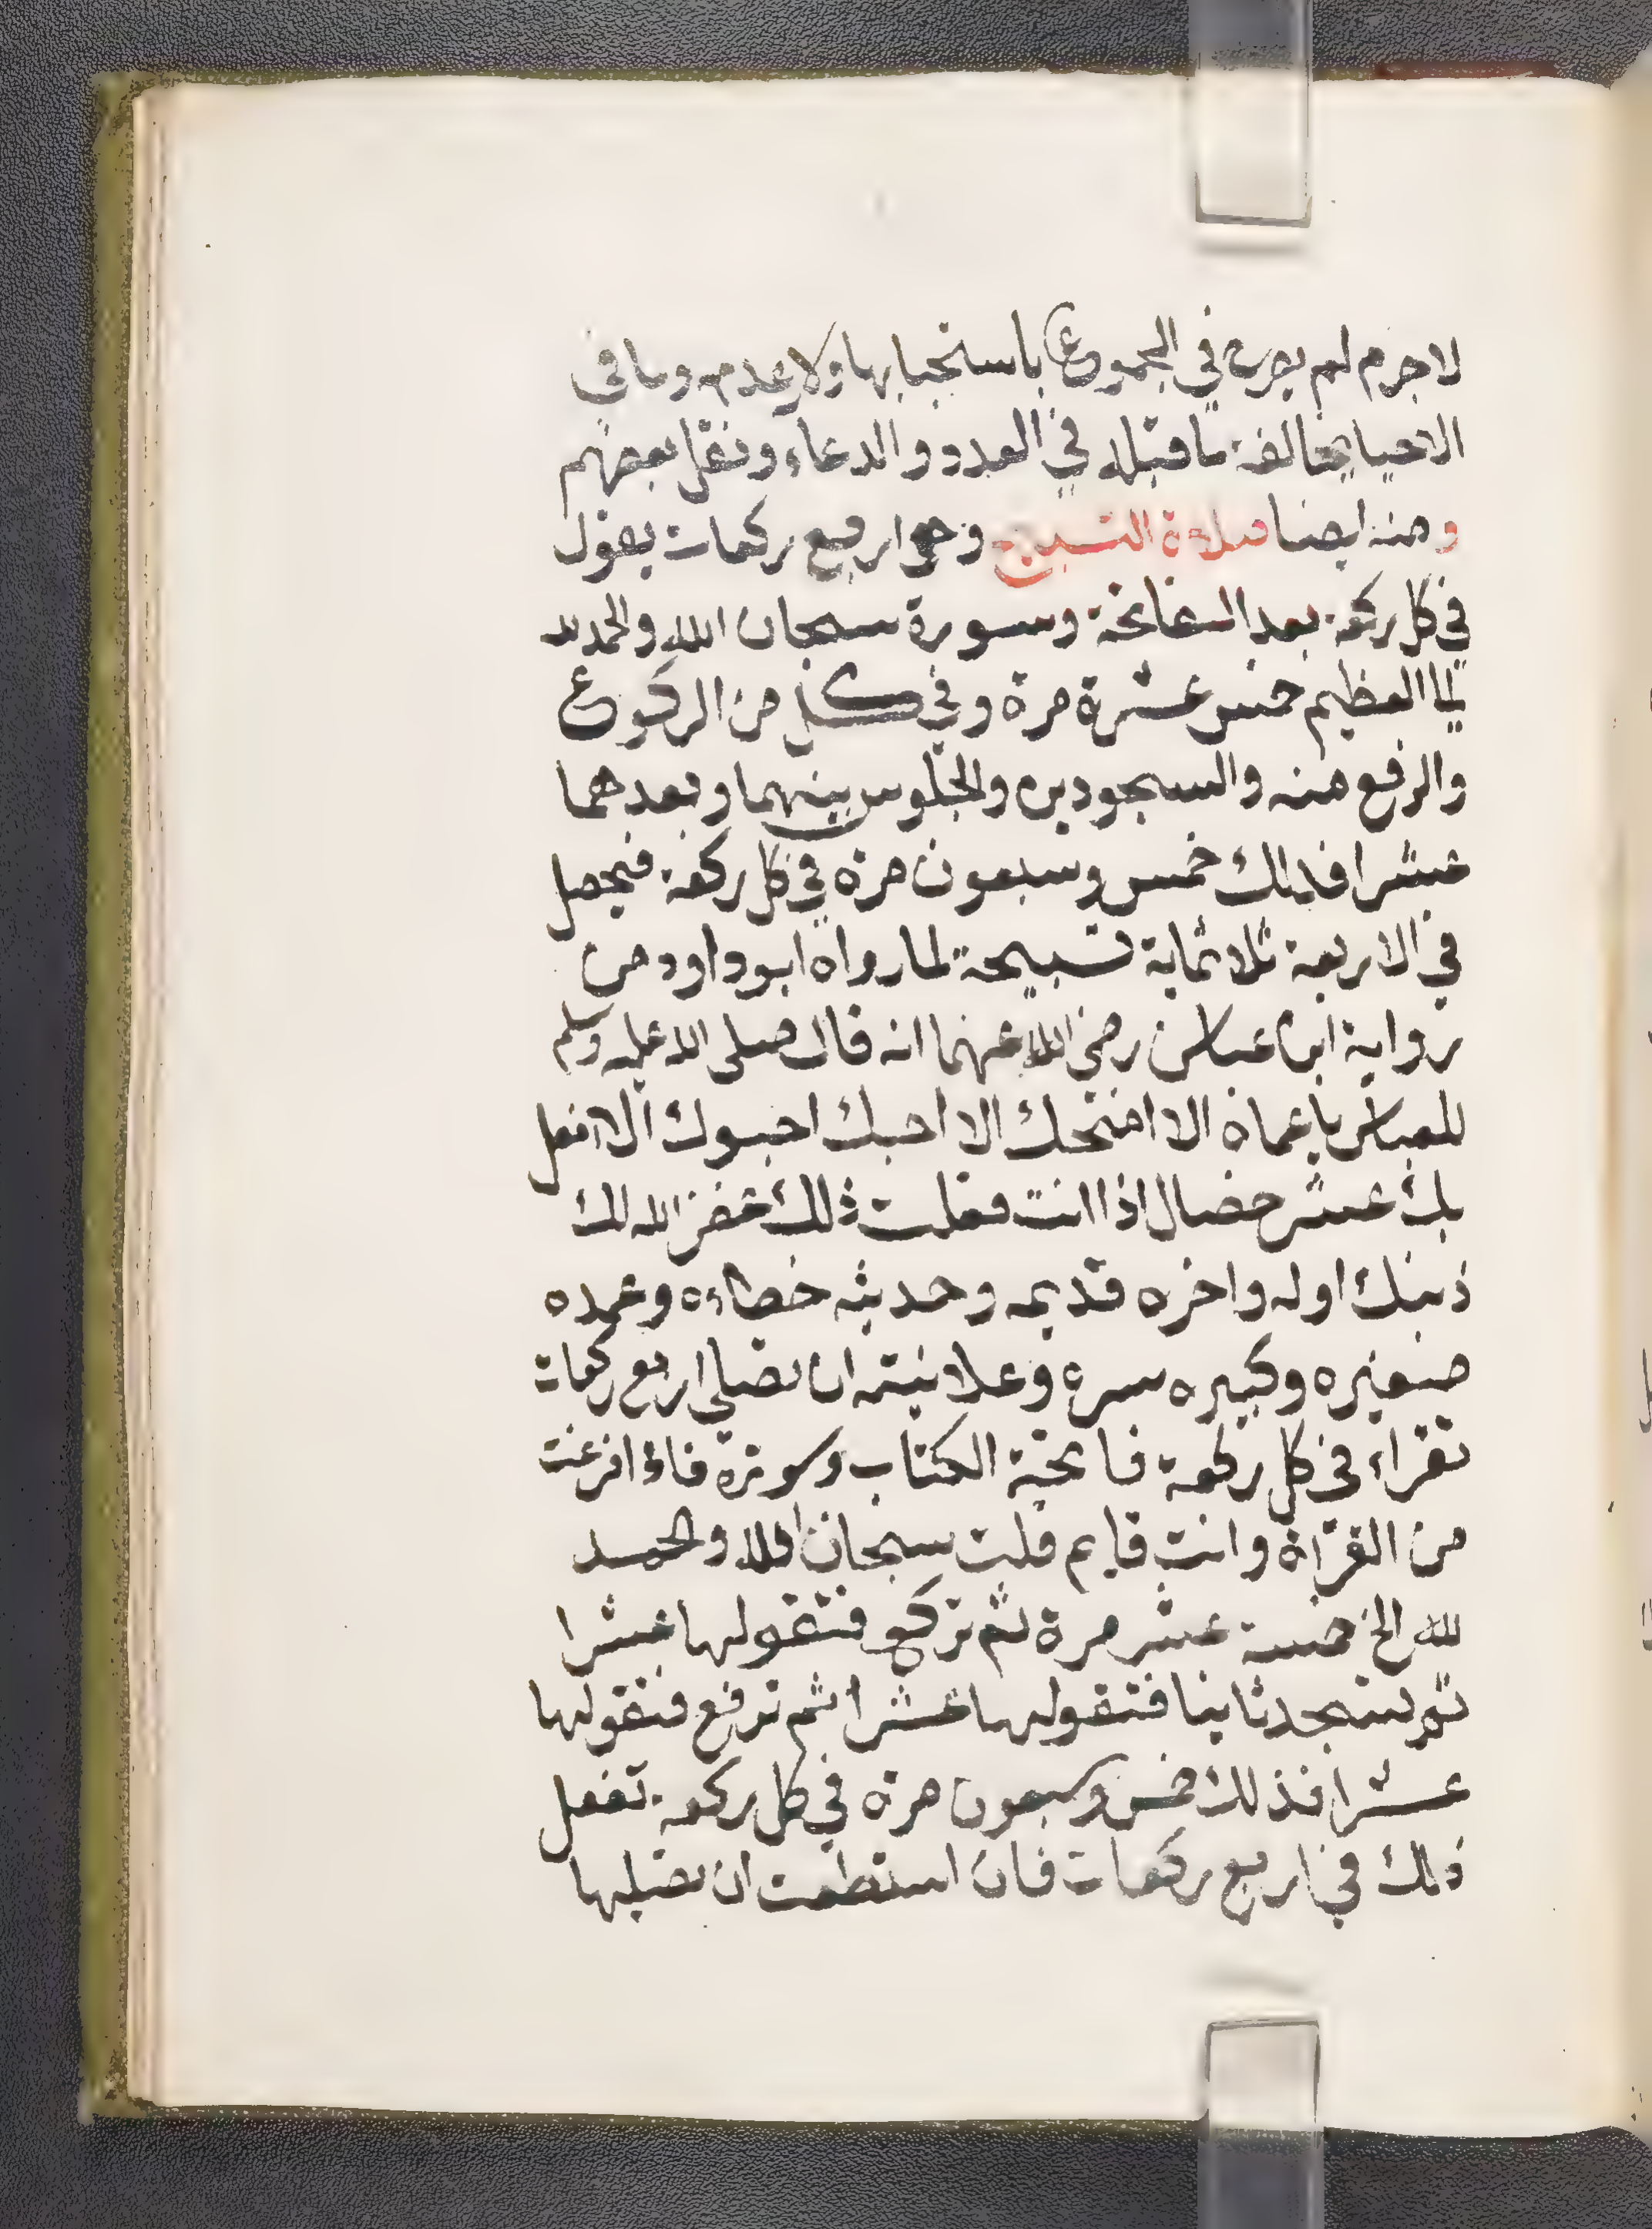 لا جرم لم يصرح في المجموع باستحبابها ولا عدمه وما في
الاحيا يخالف ما قبله في العدد والدعاء ونقل بعضهم
ومنه ايضا صلاة التسبيح وهو اربع ركعات يقول
في كل ركعة بعد الفاتحة وسورة سبحان الله والحمد لله
العظيم خمس عشرة مرة وفي كل من الركوع
والرفع منه والسجودين والجلوس بينهما وبعدهما
عشرا فذلك خمس وسبعون مرة في كل ركعة فيحصل
في الاربعة ثلاثماية تسبيحة لما رواه ابو داود من
رواية ابن عباس رضي الله عنهما انه قال صلى الله عليه وسلم
للعباس يا عماه الا امنحك الا احبك احبوك الا افعل
بك عشر خصال اذا انت فعلت ذلك غفر الله لك
ذنبك اوله واخره قديمه وحديثه خطاءه وعمده
صغيره وكبيره سره وعلانيته ان تصلي اربع ركعات
تقراء في كل ركعة فاتحة الكتاب وسورة فاذا فرغت
من القراة وانت قايم قلت سبحان الله والحمد
لله الخ خمسة عشر مرة ثم تركع فتقولها عشرا
ثم تسجد ثانيا فتقولها عشرا ثم ترفع فتقولها
عشرا فذلك خمس وسبعون مرة في كل ركعة تفعل
ذلك في اربع ركعات فان استطعت ان تصليها